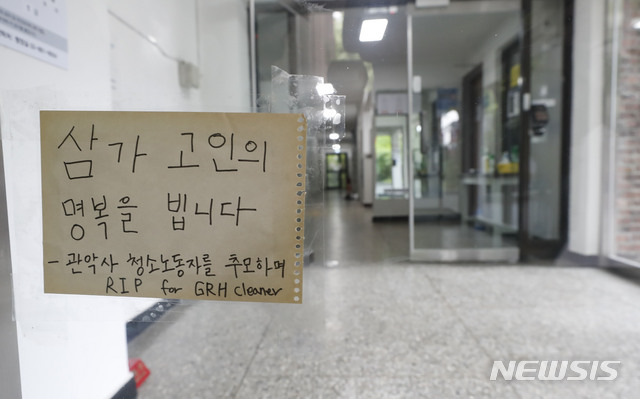 삼가 고인의
명복을 빕니다
- 관악사 청소노동자를 추모하며
RIP for GRH cleaner
NEWSIS